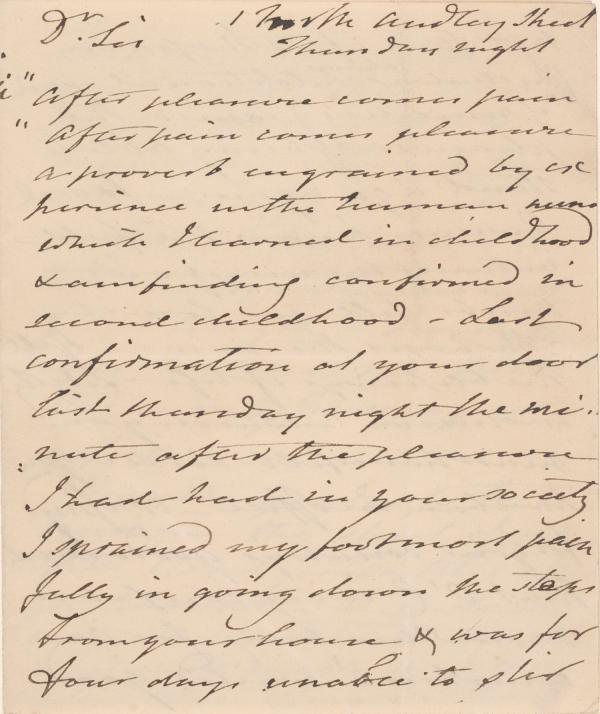 Dr Sir 1 North Audley Street
Thursday night
"After pleasure comes pain
"After pain comes pleasure
a proverb engrained by ex
perience in the human mind
which I learned in childhood
& am finding confirmed in
second childhood - Last
confirmation at your door
last thursday night the mi-
nute after the pleasure
I had had in your society
I sprained my foot most pain
fully in going down the steps
from your house & was for
four days unable to stir